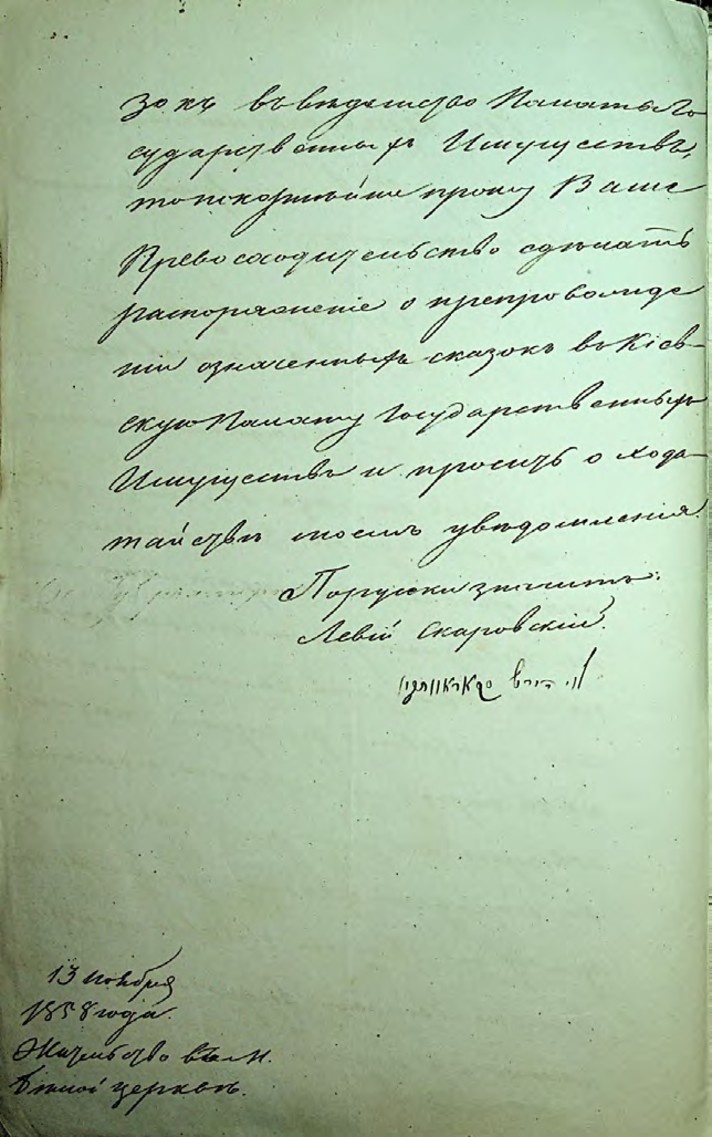 зокъ въ вѣдомство Палаты Го
сударственныхъ Имуществъ,
то покорнѣйше прошу Ваше
Превосходительство сдѣлать
распоряженіе о препровожде
ніи означенныхъ сказокъ въ Кіев-
скую Палату Государственныхъ
Имуществъ и просить о хода-
тайствѣ моемъ увѣдомленія.
По русски значитъ:
Левій Скаровскій.
13 ноября
1858 года.
Жительство въ м.
Бѣлой церквѣ.